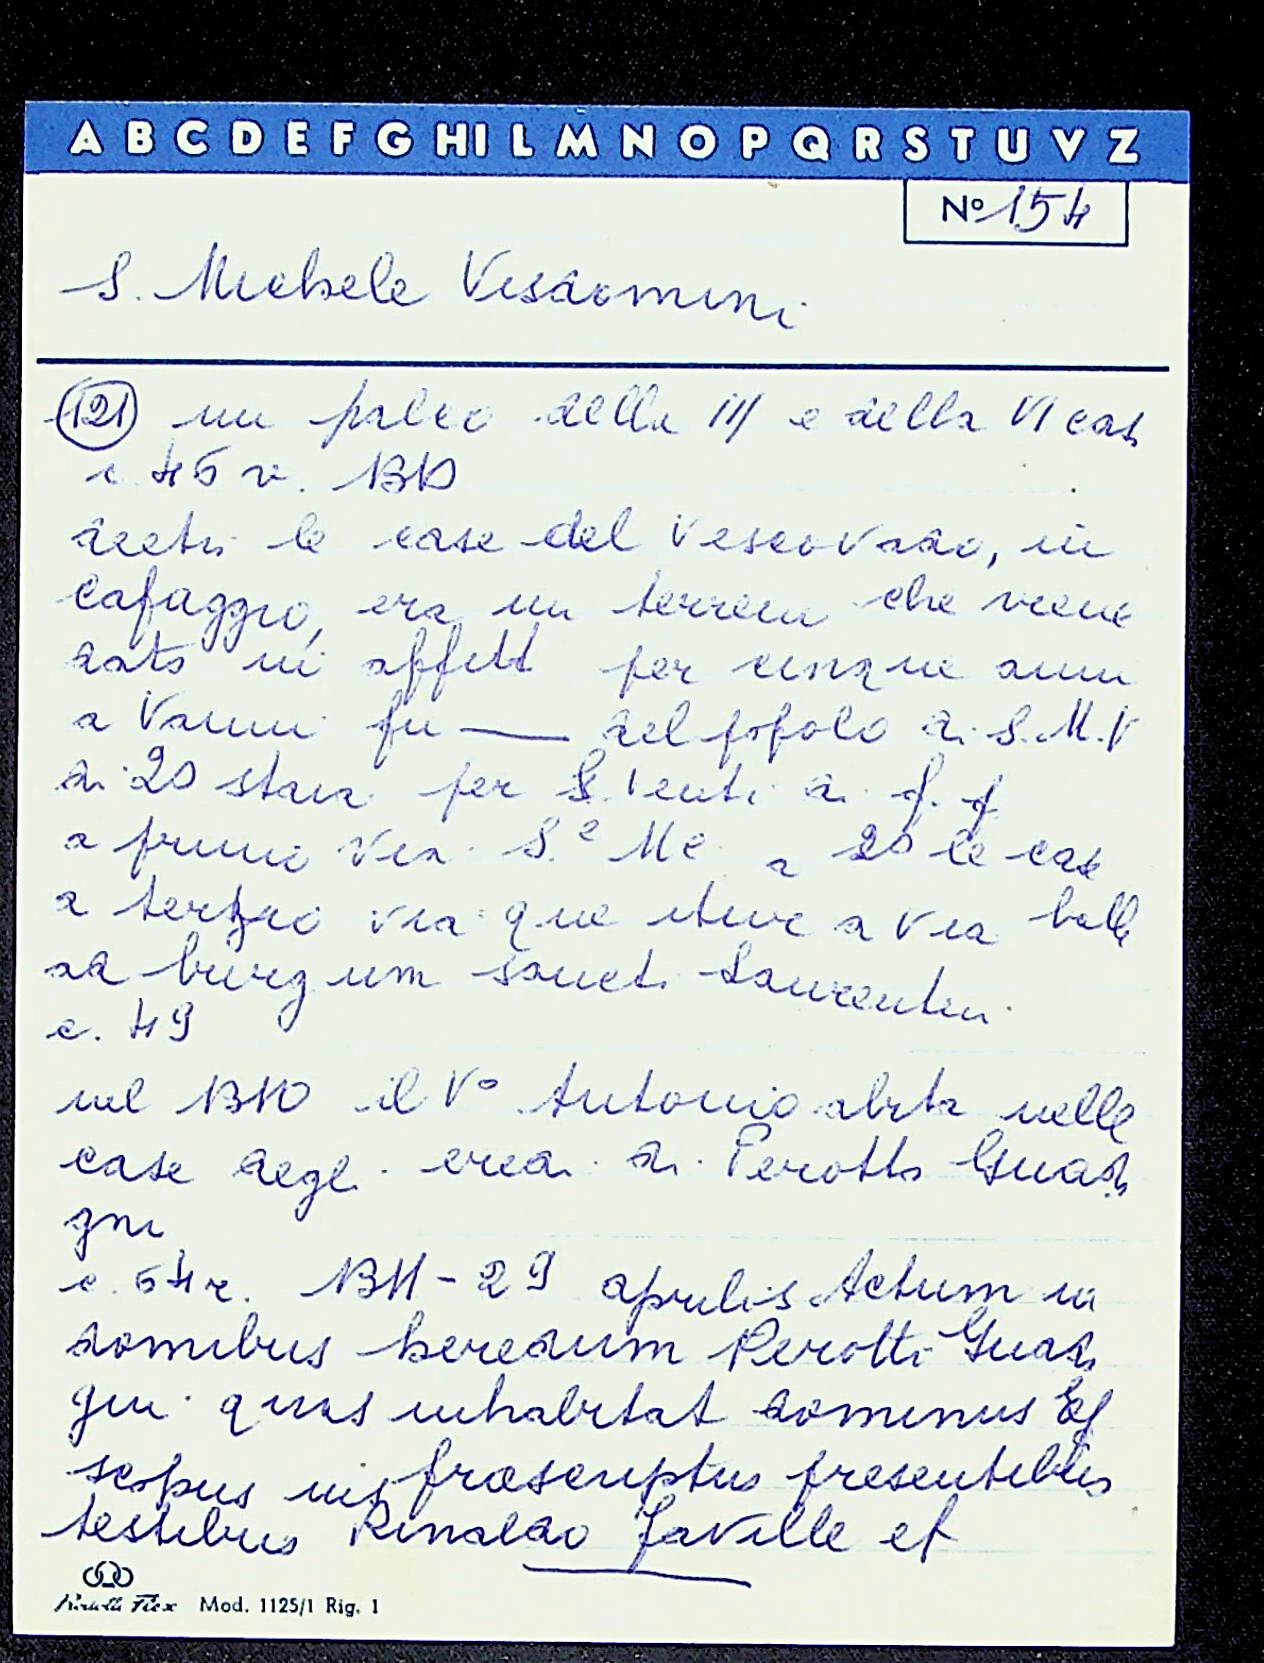 A B C D E F G H I L M N O P Q R S T U V Z
Nº 154
S. Michele Visdomini
(121) un palco della III e della VI cas
c. 45 v. BD
detti le case del Vescovado, in
Cafaggio, era un terreno che viene
dato in affitt per cinque anni
a Vanni fu — del popolo di S. M. V
di 20 staia per venti di f. f
a primo via S. M 2º le case
a terzio via que itur a via
ad burgum sancti Laurentii.
c. 49
nel il Vº Antonio abita nelle
case degli eredi di Perotto Guada
gni
c. 64 r. 29 aprilis Actum in
domibus heredum Perotti Guada
gni quas inhabitat dominus Ep
scopus praescriptus presentibus
testibus Rinaldo Faville et
Mod. 1125/1 Rig. 1